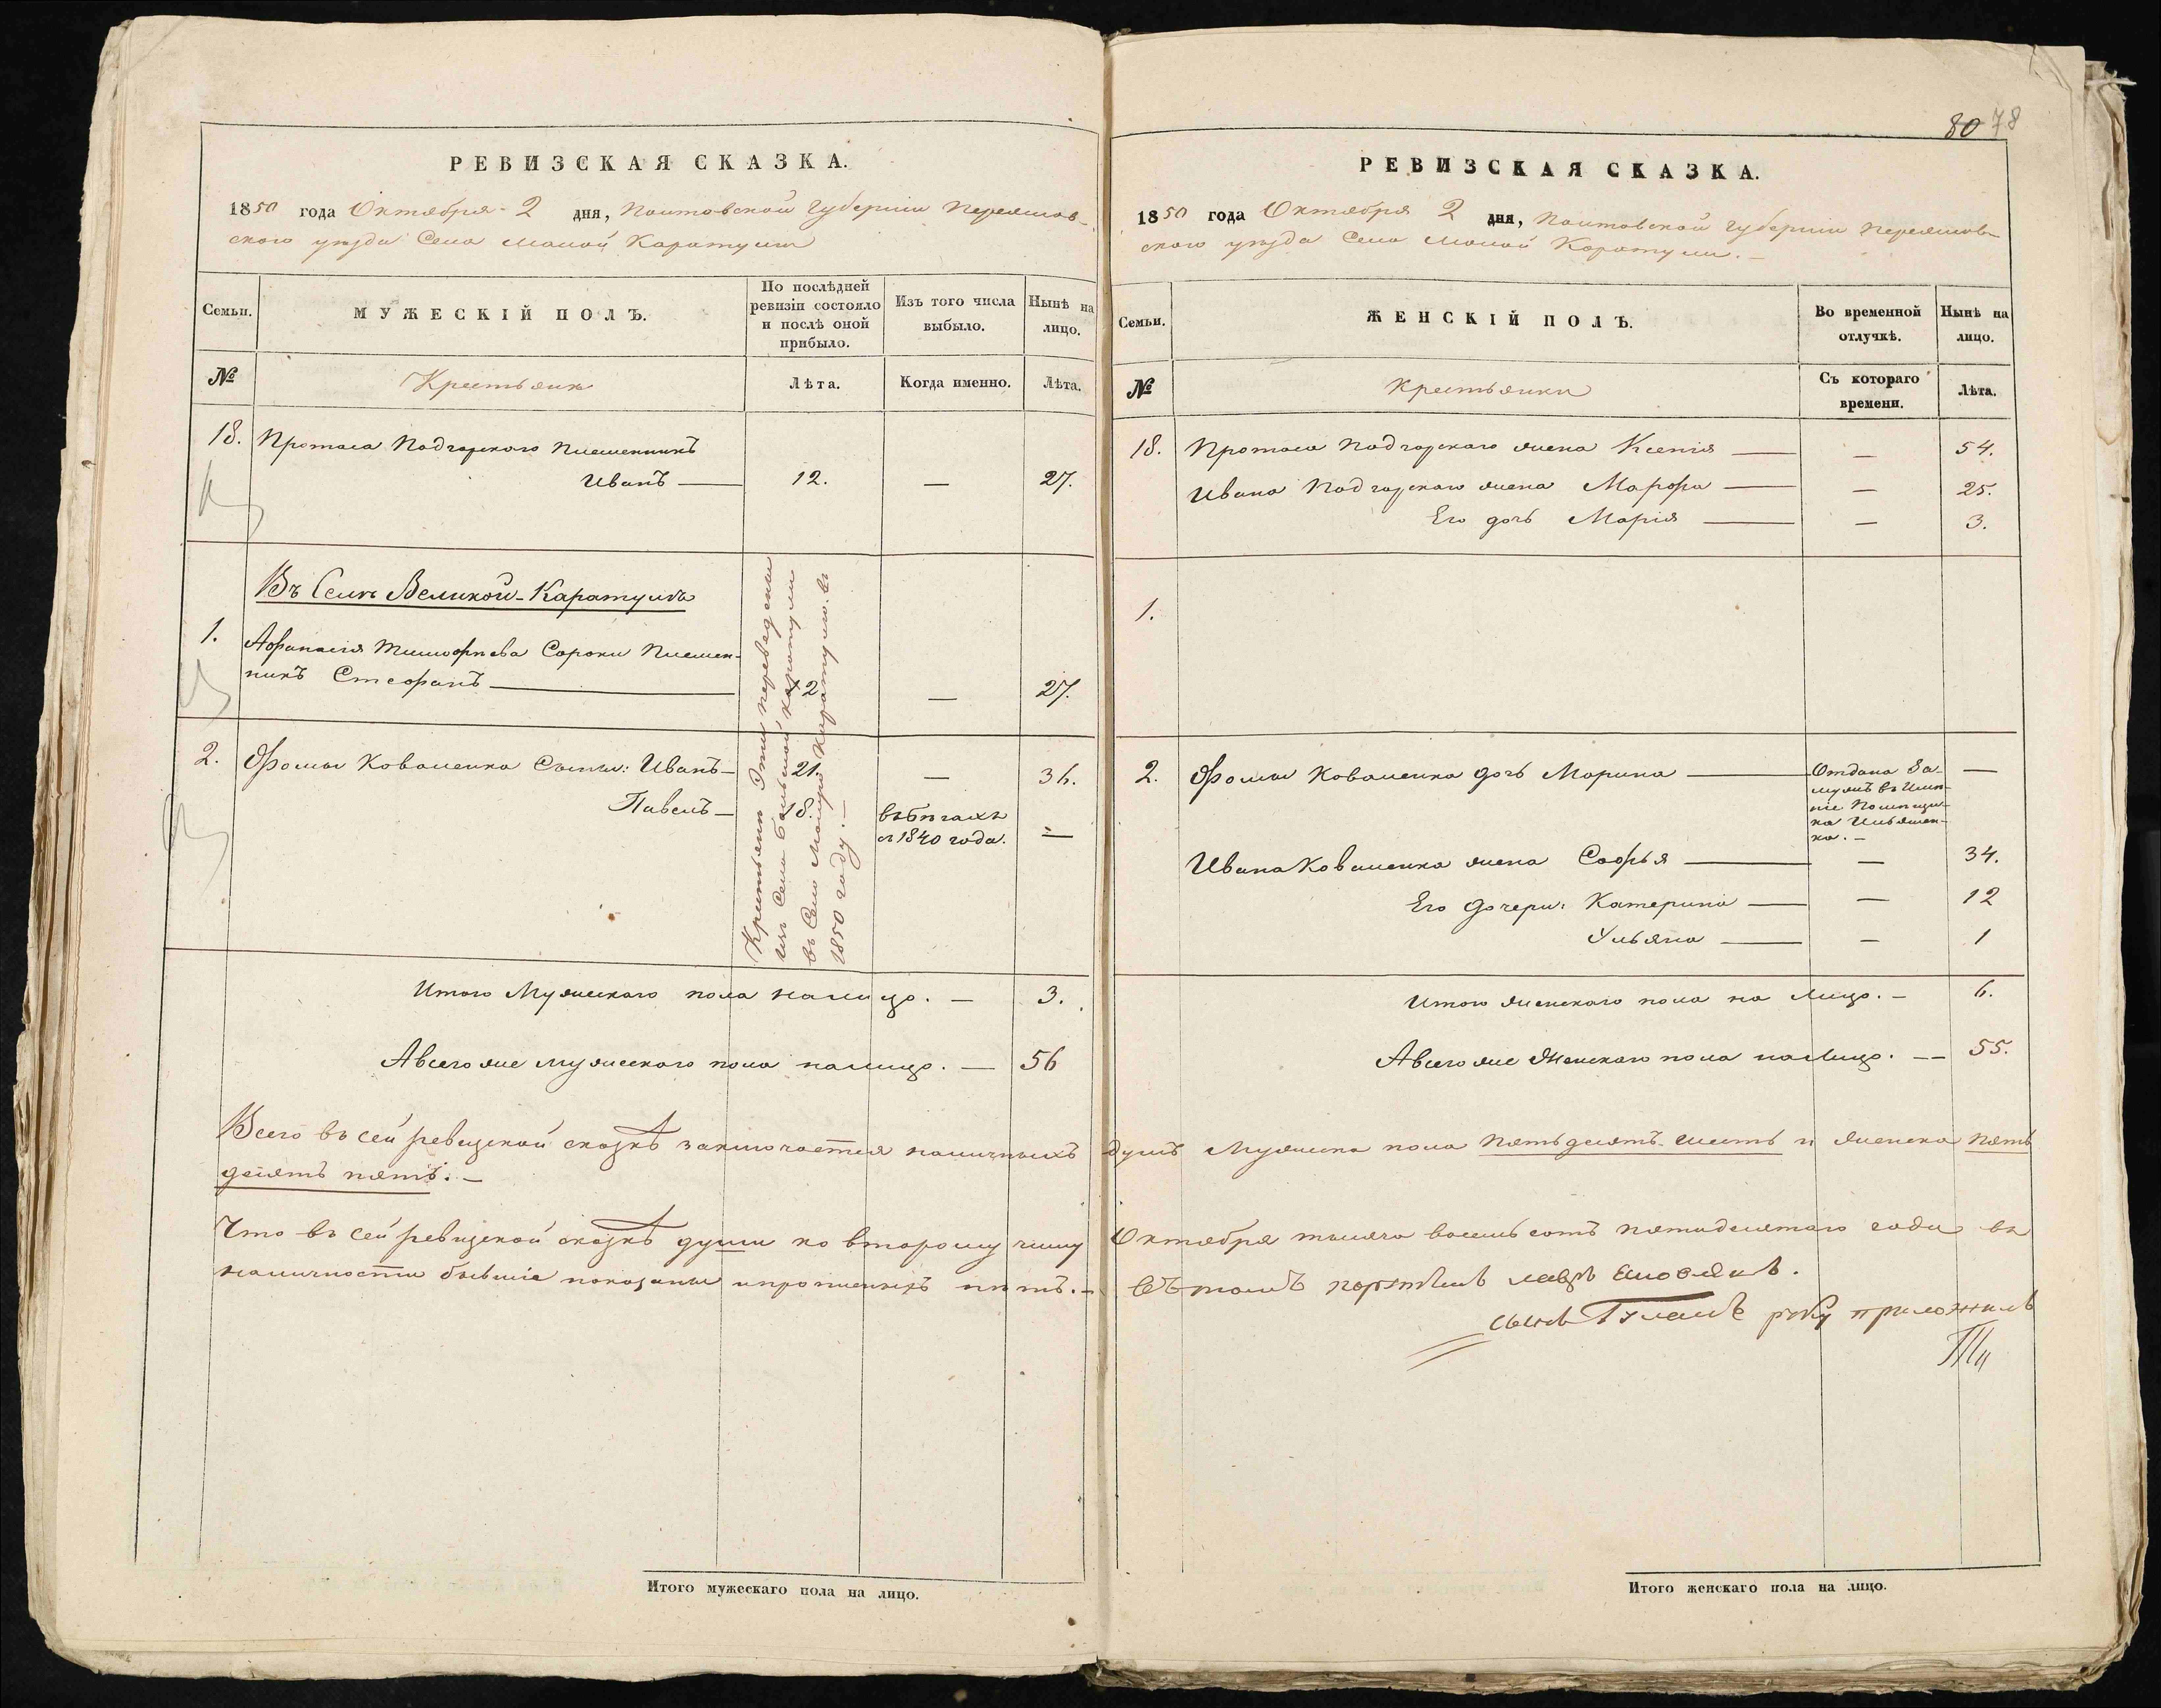 РЕВИЗСКАЯ СКАЗКА.
1850 года Октября 2 дня, Полтавской Губернии Переяслов-
ского уѣзда Села Малой Каратули
Семьи.
МУЖЕСКІЙ ПОЛЪ.
По послѣдней
ревизіи состояло
и послѣ оной
прибыло.
Изъ того числа
выбыло.
Нынѣ на
лицо.
№
Крестьяне
Лѣта.
Когда именно.
Лѣта.
18. Протаса Подгорского Племенникъ
Иванъ — 12. — 27.
Въ Селѣ Великой-Каратулѣ
1. Афанасія Тимофѣева Сороки Племен-
никъ Стефанъ — 12 — 27.
2. Фомы Коваленка Сыны: Иванъ — 21. — 36.
Павелъ — 18. въ бѣгахъ
съ 1840 года. —
Крестьяне Эти переведены
изъ Села Большой Каратули
въ Село Малую Каратулю. въ
1850 году. —
Итого Мужескаго пола налицо. — 3.
А всего же мужескаго пола налицо. — 56
Всего въ сей ревизской сказкѣ заключается наличныхъ
десятъ пять. —
Что въ сей ревизской сказкѣ души ко второму числу
наличности бывшіе показаны и прописныхъ нѣтъ. —
80 78
РЕВИЗСКАЯ СКАЗКА.
1850 года Октября 2 дня, Полтавской Губерніи Переяслов-
ского уѣзда Села Малой Каратули. —
Семьи.
ЖЕНСКІЙ ПОЛЪ.
Во временной
отлучкѣ.
Нынѣ на
лицо.
№
Крестьянки
Съ котораго
времени.
Лѣта.
18. Протаса Подгорскаго жена Ксенія — — 54.
Ивана Подгорскаго жена Марфа — — 25.
Его дочь Марія — — 3.
1.
2. Фомы Коваленка дочь Марина — Отдана За- —
мужъ въ Имѣ-
ніе Помѣщи-
ка Ильяшен-
ка. —
Ивана Коваленка жена Софья — — 34.
Его дочери: Катерина — — 12
Ульяна — — 1
Итого женскаго пола на лицо. — 6.
А всего же Женскаго пола налицо. — 55.
душъ Мужеска пола пятьдесятъ шесть и женска пять
Октября тысяча восемь сотъ пятидесятаго года въ
въ томъ
сынъ руку приложилъ
Итого мужескаго пола на лицо.
Итого женскаго пола на лицо.